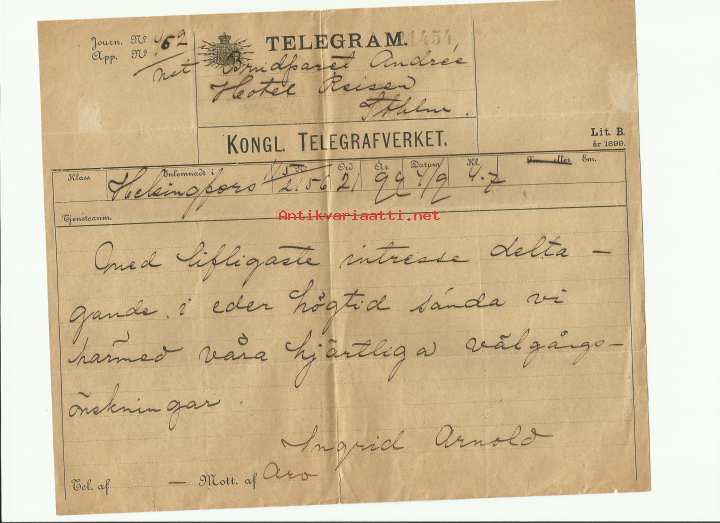 Journ. No 162
App. No
TELEGRAM.
1454
Brudparet Andrée
Hotel Reisen
Sthlm.
KONGL. TELEGRAFVERKET.
Lit. B.
år 1899.
Klass Inlemnadt i Ord År Datum Kl. Fm. eller Em.
Helsingfors 2.56 21 99 1/9 4.7
Tjensteanm.
Antikvariaatti.net
Med lifligaste intresse delta-
gande i eder högtid sända vi
härmed våra hjärtliga välgångs-
önskningar.
Ingrid Arnold
Tel. af — Mott. af Aro